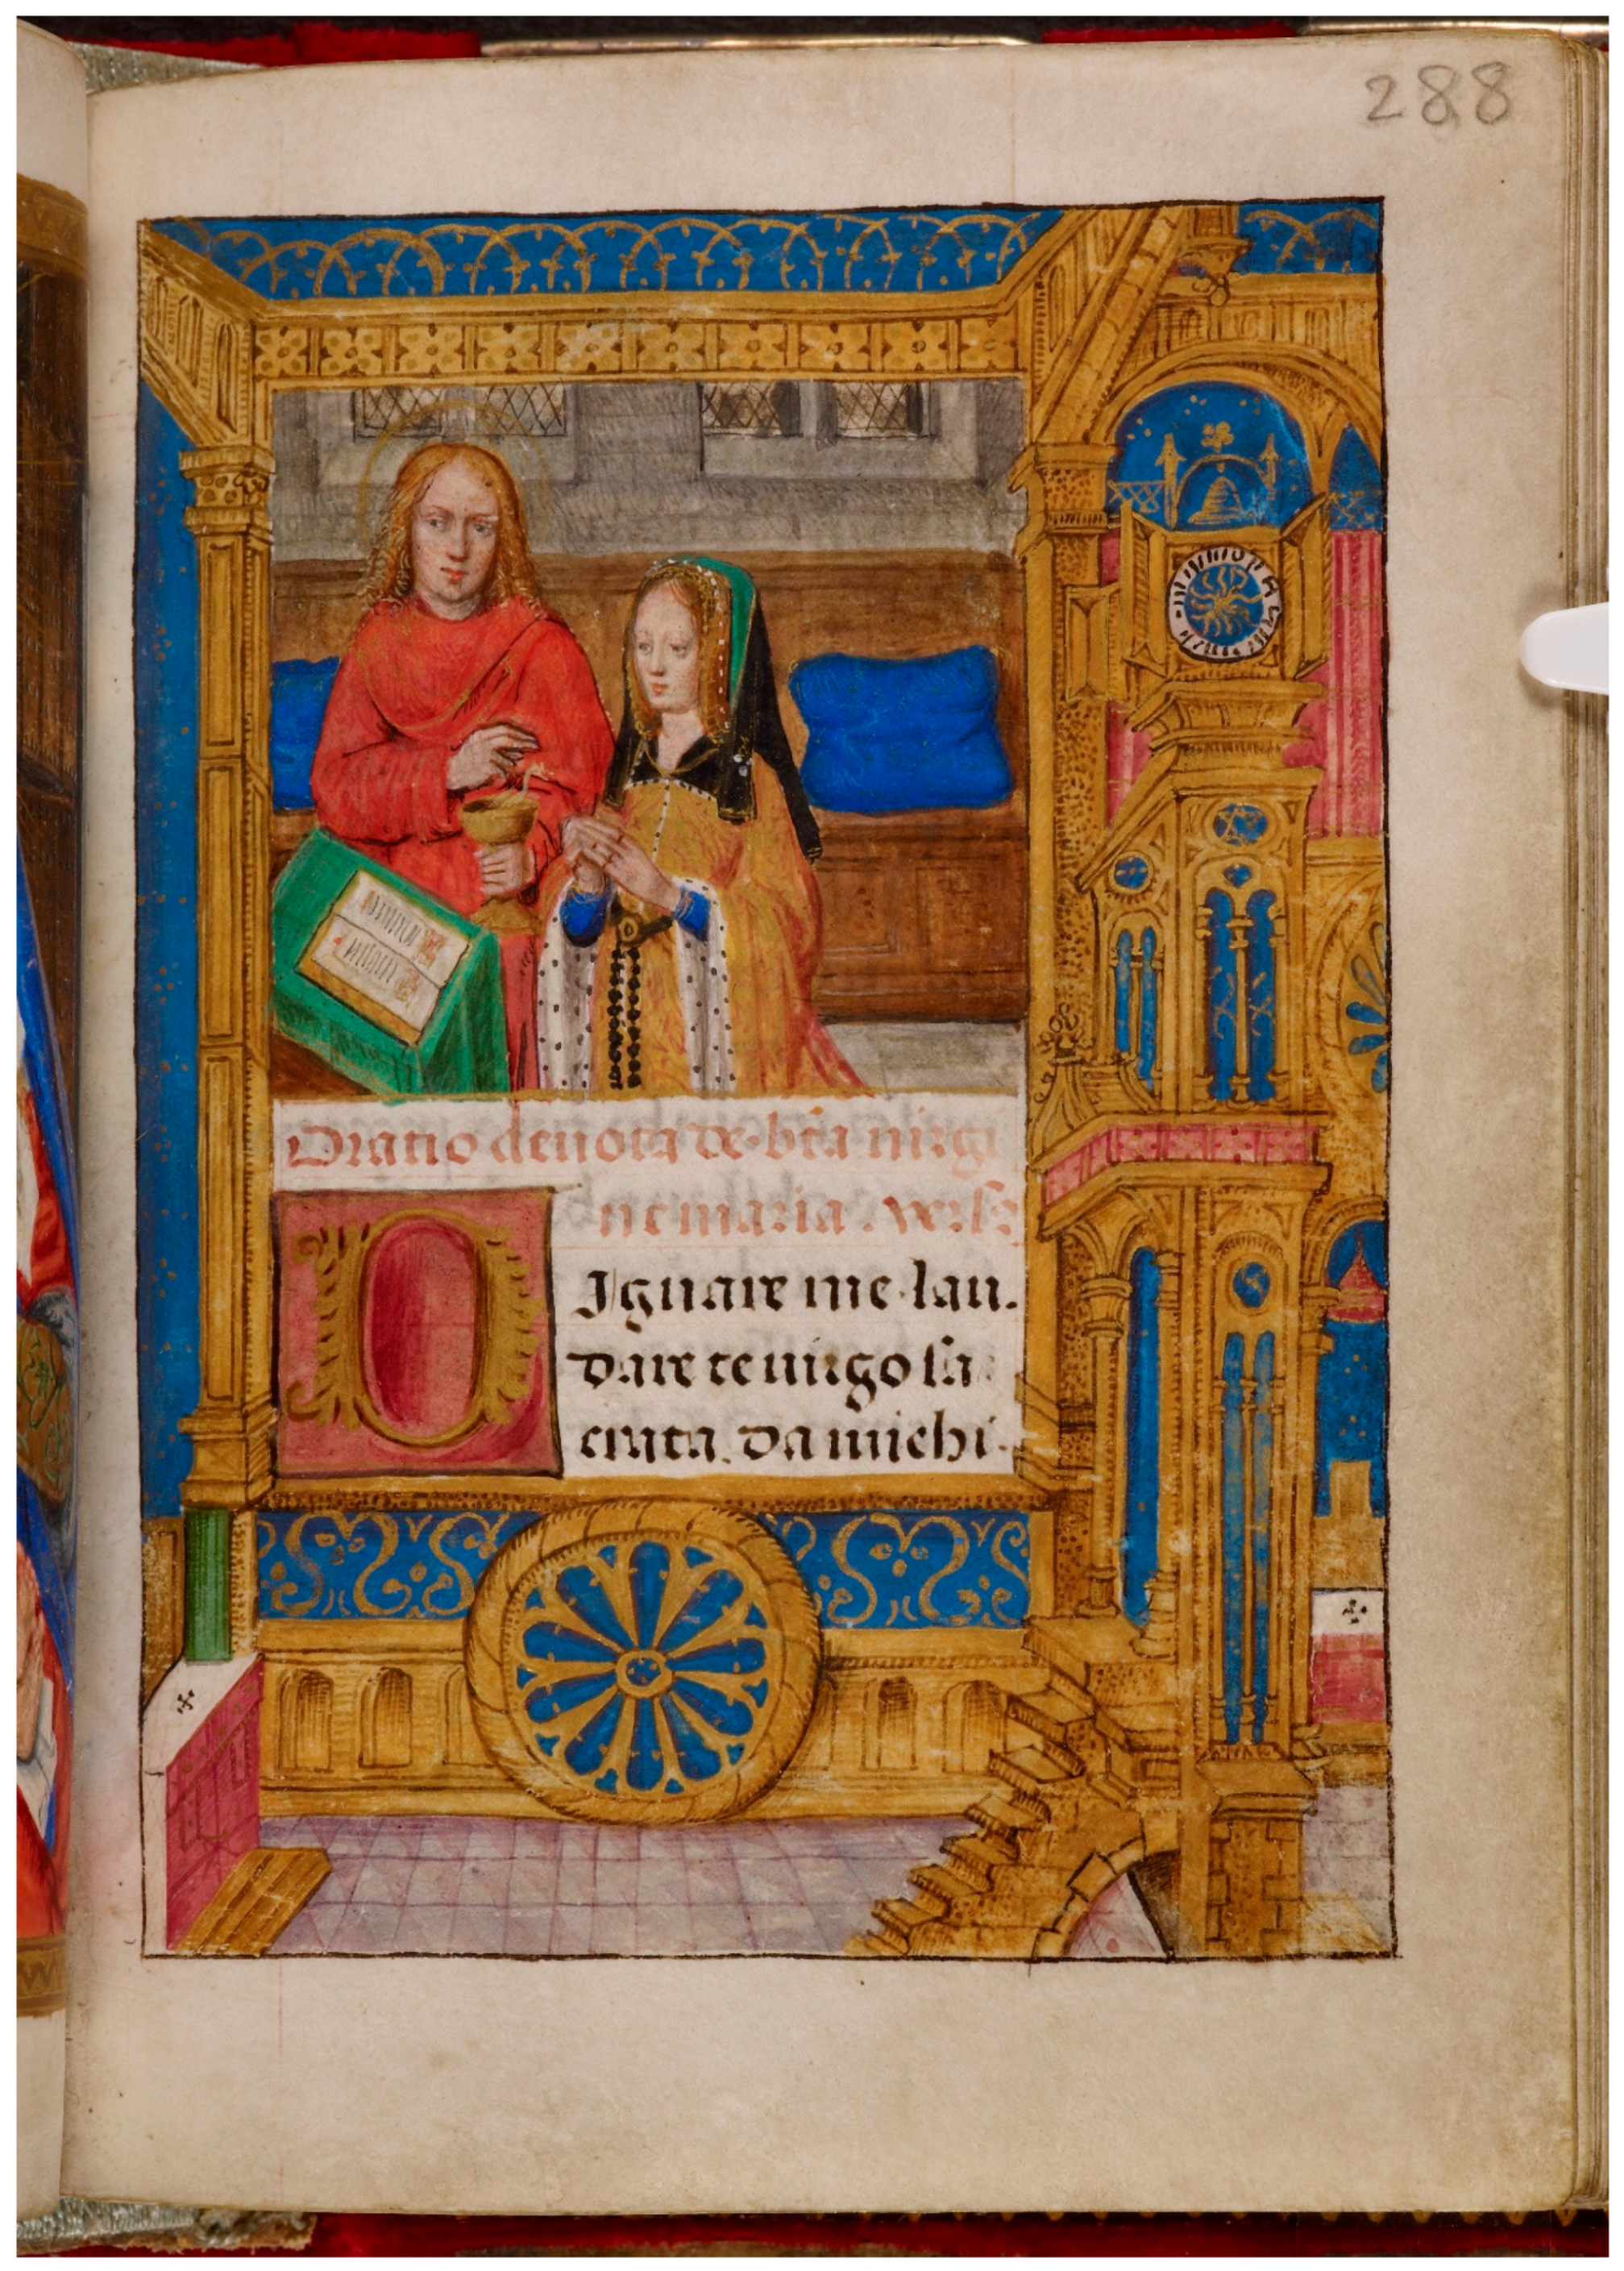 288
Oratio deuota de bt̄a uirgi
ne maria. vers̄
Ignare me lau.
dare te uirgo sa
crata. da michi